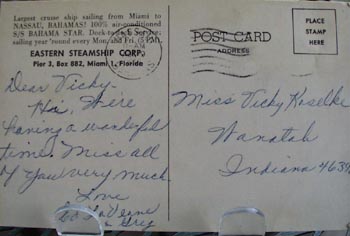 Largest cruise ship sailing from Miami to
NASSAU, BAHAMAS! 100% air-conditioned
S/S BAHAMA STAR. Dock-to-dock Service;
sailing year 'round every Mon. and Fri. (5 P.M.)
EASTERN STEAMSHIP CORP.
Pier 3, Box 882, Miami 1, Florida
Dear Vicky
Hi, We're
having a wonderful
time. Miss all
of you very much
Love
Greg
POST CARD
ADDRESS
PLACE
STAMP
HERE
Miss Vicky Koselke
Wanatah
Indiana 4639